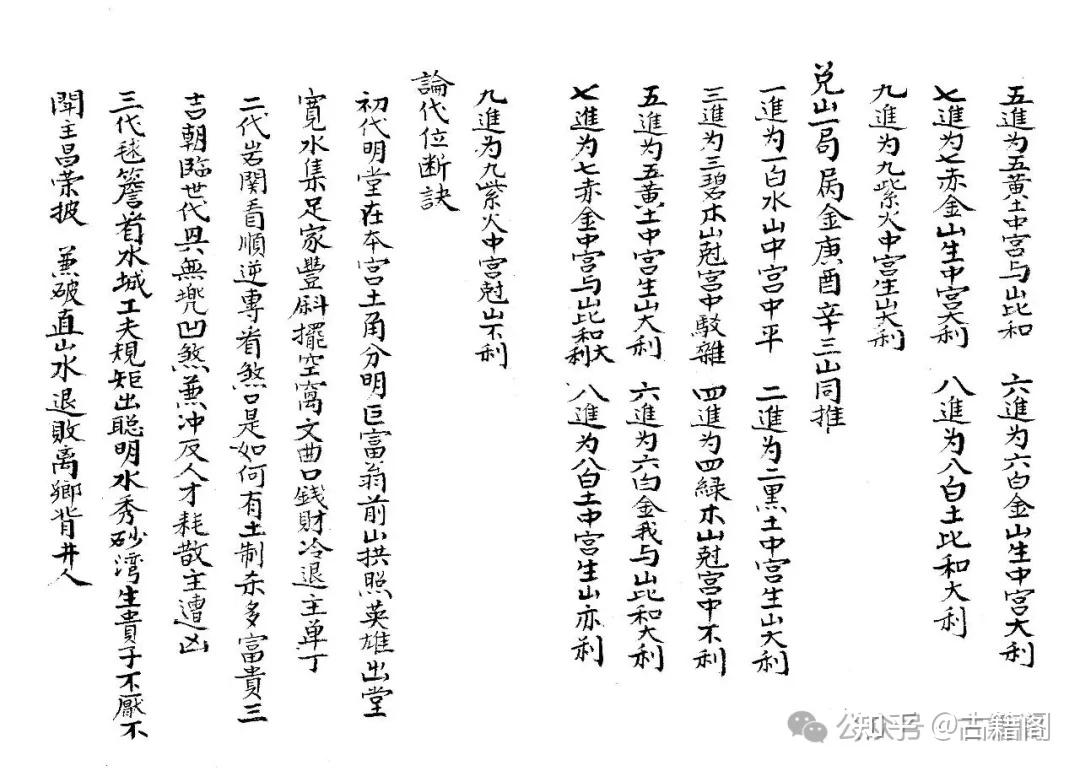 五進为五黄土中宫与山比和　六進为六白金山生中宫大利
七進为七赤金山生中宫大利　八進为八白土比和大利
九進为九紫火中宫生山大利
兑山一局属金庚酉辛三山同推
一進为一白水山中宫中平　二進为二黑土中宫生山大利
三進为三碧木山尅宫中駁雜　四進为四緑木山尅宫中不利
五進为五黄土中宫生山大利　六進为六白金我与山比和大利
七進为七赤金中宫与山比和大利　八進为八白土中宫生山亦利
九進为九紫火中宫尅山不利
論代位断訣
初代明堂在本宫土角分明巨富翁前山拱照英雄出堂
寬水集足家豐斜擺空窩文曲口錢財冷退主单丁
二代岩関看順逆專看煞口是如何有土制杀多富貴三
吉朝臨世代興無兠凹煞兼冲反人才耗散主遭凶
三代毬簷看水城工夫規矩出聪明水秀砂湾生貴子不厭不
闘主昌荣披　兼破直山水退敗离鄉背井人
知乎 @古籍阁